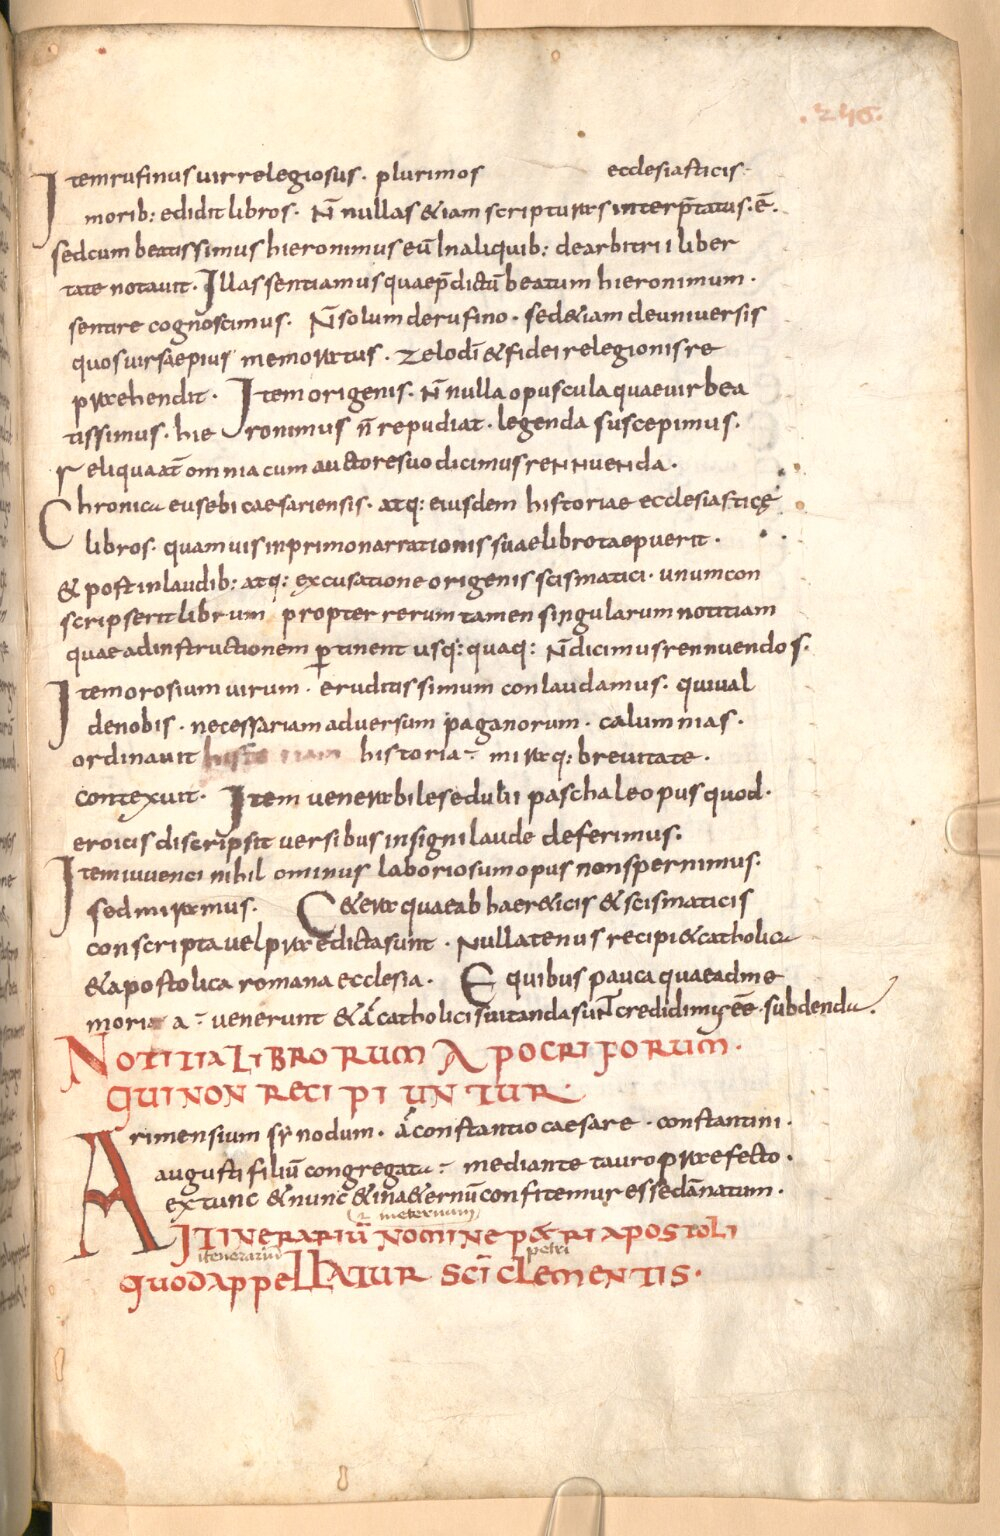 .246.
Item rufinus uir relegiosus. plurimos ecclesiasticis.
morib: edidit libros. N̄ nullas &iam scripturas interp̄tatus. ē.
sed cum beatissimus hieronimus eū In aliquib: de arbitrii liber
tate notauit. Illa s sentiamus quae p̄dictū beatum hieronimum.
sentire cognoscimus. N̄ solum de rufino. sed &iam de uniuersis
quos uir saepius memoratus. zelo dī & fidei relegionis re
praehendit. Item origenis. N̄ nulla opuscula quae uir bea
tissimus. hieronimus n̄ repudiat. legenda suscepimus.
reliqua aū omnia cum auctore suo dicimus rennuenda.
Chronica eusebi caesariensis. atq: eiusdem historiae ecclesiasticę
libros. quamuis in primo narrationis suae libro taepuerit.
& post in laudib: atq: excusatione origenis scismatici. unum con
scripserit librum propter rerum tamen singularum notitiam
quae ad instructionem ꝑtinent usq: quaq: N̄ dicimus rennuendos.
Item orosium uirum. eruditissimum conlaudamus. qui ual
de nobis. necessariam aduersum paganorum. calumnias.
ordinauit historiam historia÷ miraq: breuitate.
contexuit. Item uenerabilis edulii paschale opus quod.
eroicis discripsit uersibus insigni laude deferimus.
Item iuuenci nihil ominus laboriosum opus non spernimus.
sed miramus. C&era quae ab haer&icis & scismaticis
conscripta uel praedicta sunt. Nullatenus recipi& catholica
& apostolica romana ecclesia. E quibus pauca quae ad me
moria a÷ uenerunt & á catholicis uitanda sunt credidimus eē. subdenda.
NOTITIA LIBRORUM APOCRIFORUM.
QUI NON RECIPIUNTUR.
Arimensium sẏnodum. á constantio caesare. constantini.
augusti filiū congregata÷ mediante tauro praefecto.
ex tunc & nunc & in a&ernū confitemur esse dānatum.
in aeternum
ITINERARIŪ NOMINE PETRI APOSTOLI
itenerariū petri
QUOD APPELLATUR SCĪ CLEMENTIS.